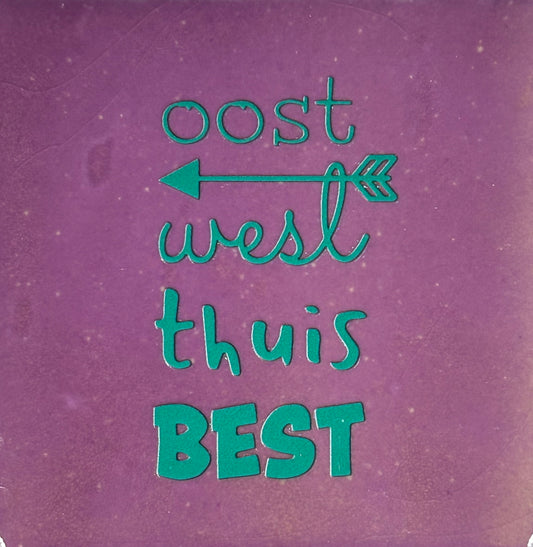 oost
west
thuis
BEST